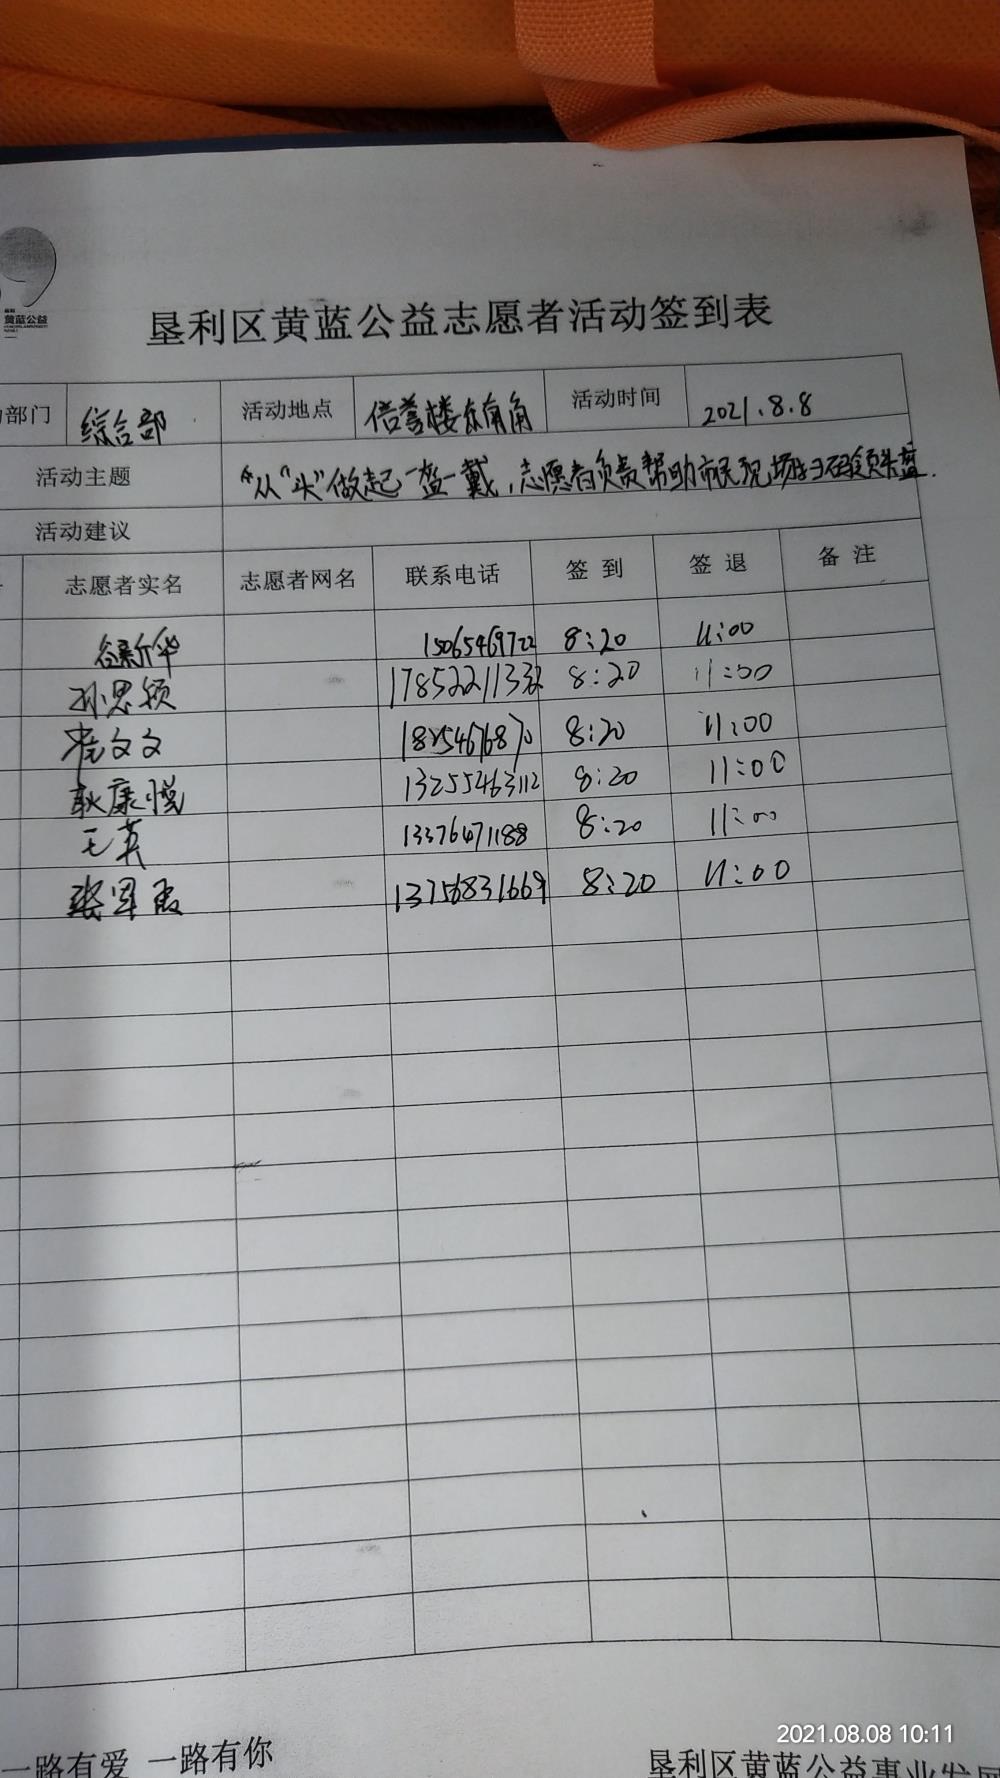 黄蓝公益
垦利区黄蓝公益志愿者活动签到表
部门 综合部 活动地点 信誉楼东南角 活动时间 2021.8.8
活动主题 "从"头"做起 一盔一戴,志愿者负责帮助市民现场
活动建议
志愿者实名 志愿者网名 联系电话 签到 签退 备注
谷新华 15065469722 8:20 11:00
孙思颖 8:20 11:00
崔文文 8:20 11:00
耿康悦 13255463112 8:20 11:00
王英 13376471188 8:20 11:00
张军霞 13756831669 8:20 11:00
一路有爱 一路有你
垦利区黄蓝公益事业发展
2021.08.08 10:11